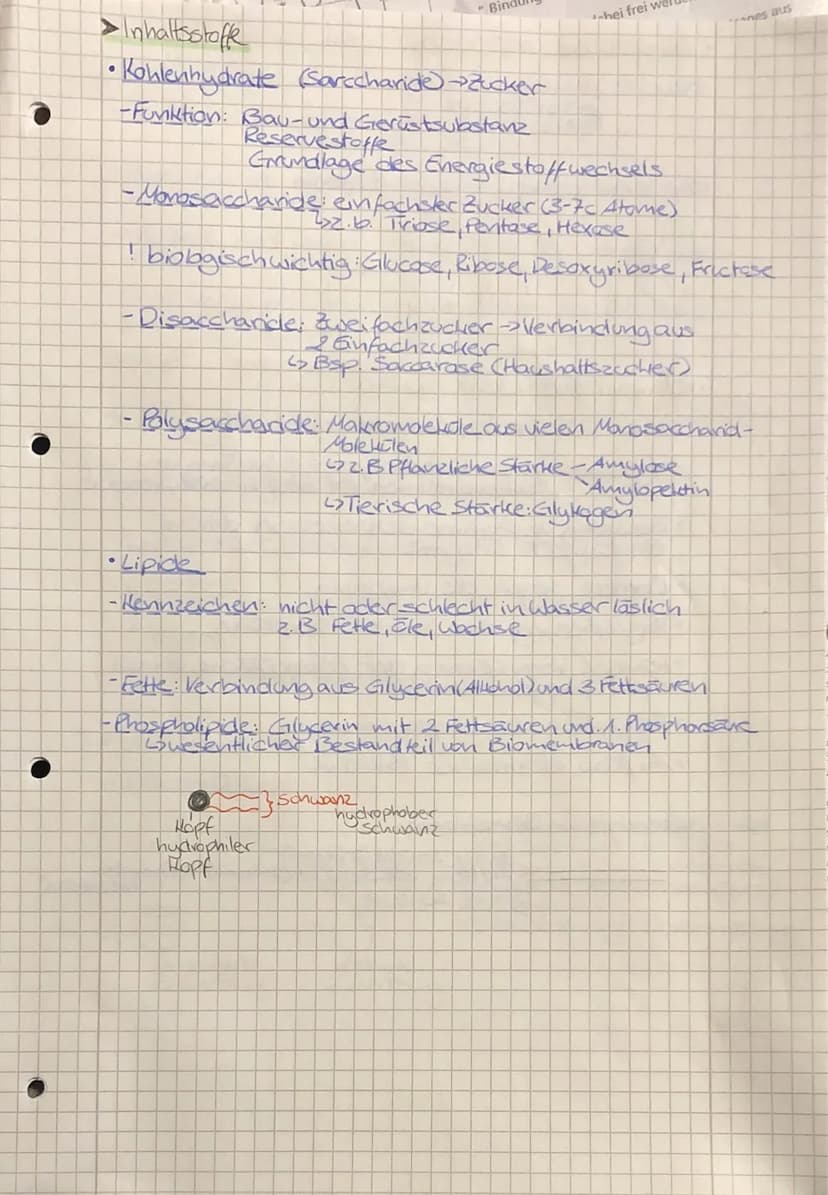 - Bindung
bei frei
aus
➤Inhaltsstoffe
• Kohlenhydrate (Sarccharide) → Zucker
- Funktion: Bau- und Gerüstsubstanz
Reservestoffe
Grundlage des Energiestoffwechsels
- Monosaccharide: einfachster Zucker (3-7c Atome)
↳ z.b. Triose, Pentose, Hexose
! biologisch wichtig: Glucose, Ribose, Desoxyribose, Fructose
- Disaccharide: Zweifachzucker → Verbindung aus
2 Einfachzucker
↳ Bsp. Saccarose (Haushaltszucker)
- Polysaccharide: Makromoleküle aus vielen Monosaccharid-
Molekülen
↳ z.B Pflanzliche Stärke - Amylose
Amylopektin
↳ Tierische Stärke: Glykogen
• Lipide
- Kennzeichen: nicht oder schlecht in Wasser löslich
z.B Fette, Öle, Wachse
- Fette: Verbindung aus Glycerin (Alkohol) und 3 Fettsäuren
- Phospholipide: Glycerin mit 2 Fettsäuren und 1. Phosphorsäure
↳ wesentlicher Bestandteil von Biomembranen
} Schwanz
hydrophober
Schwanz
Kopf
hydrophiler
Kopf